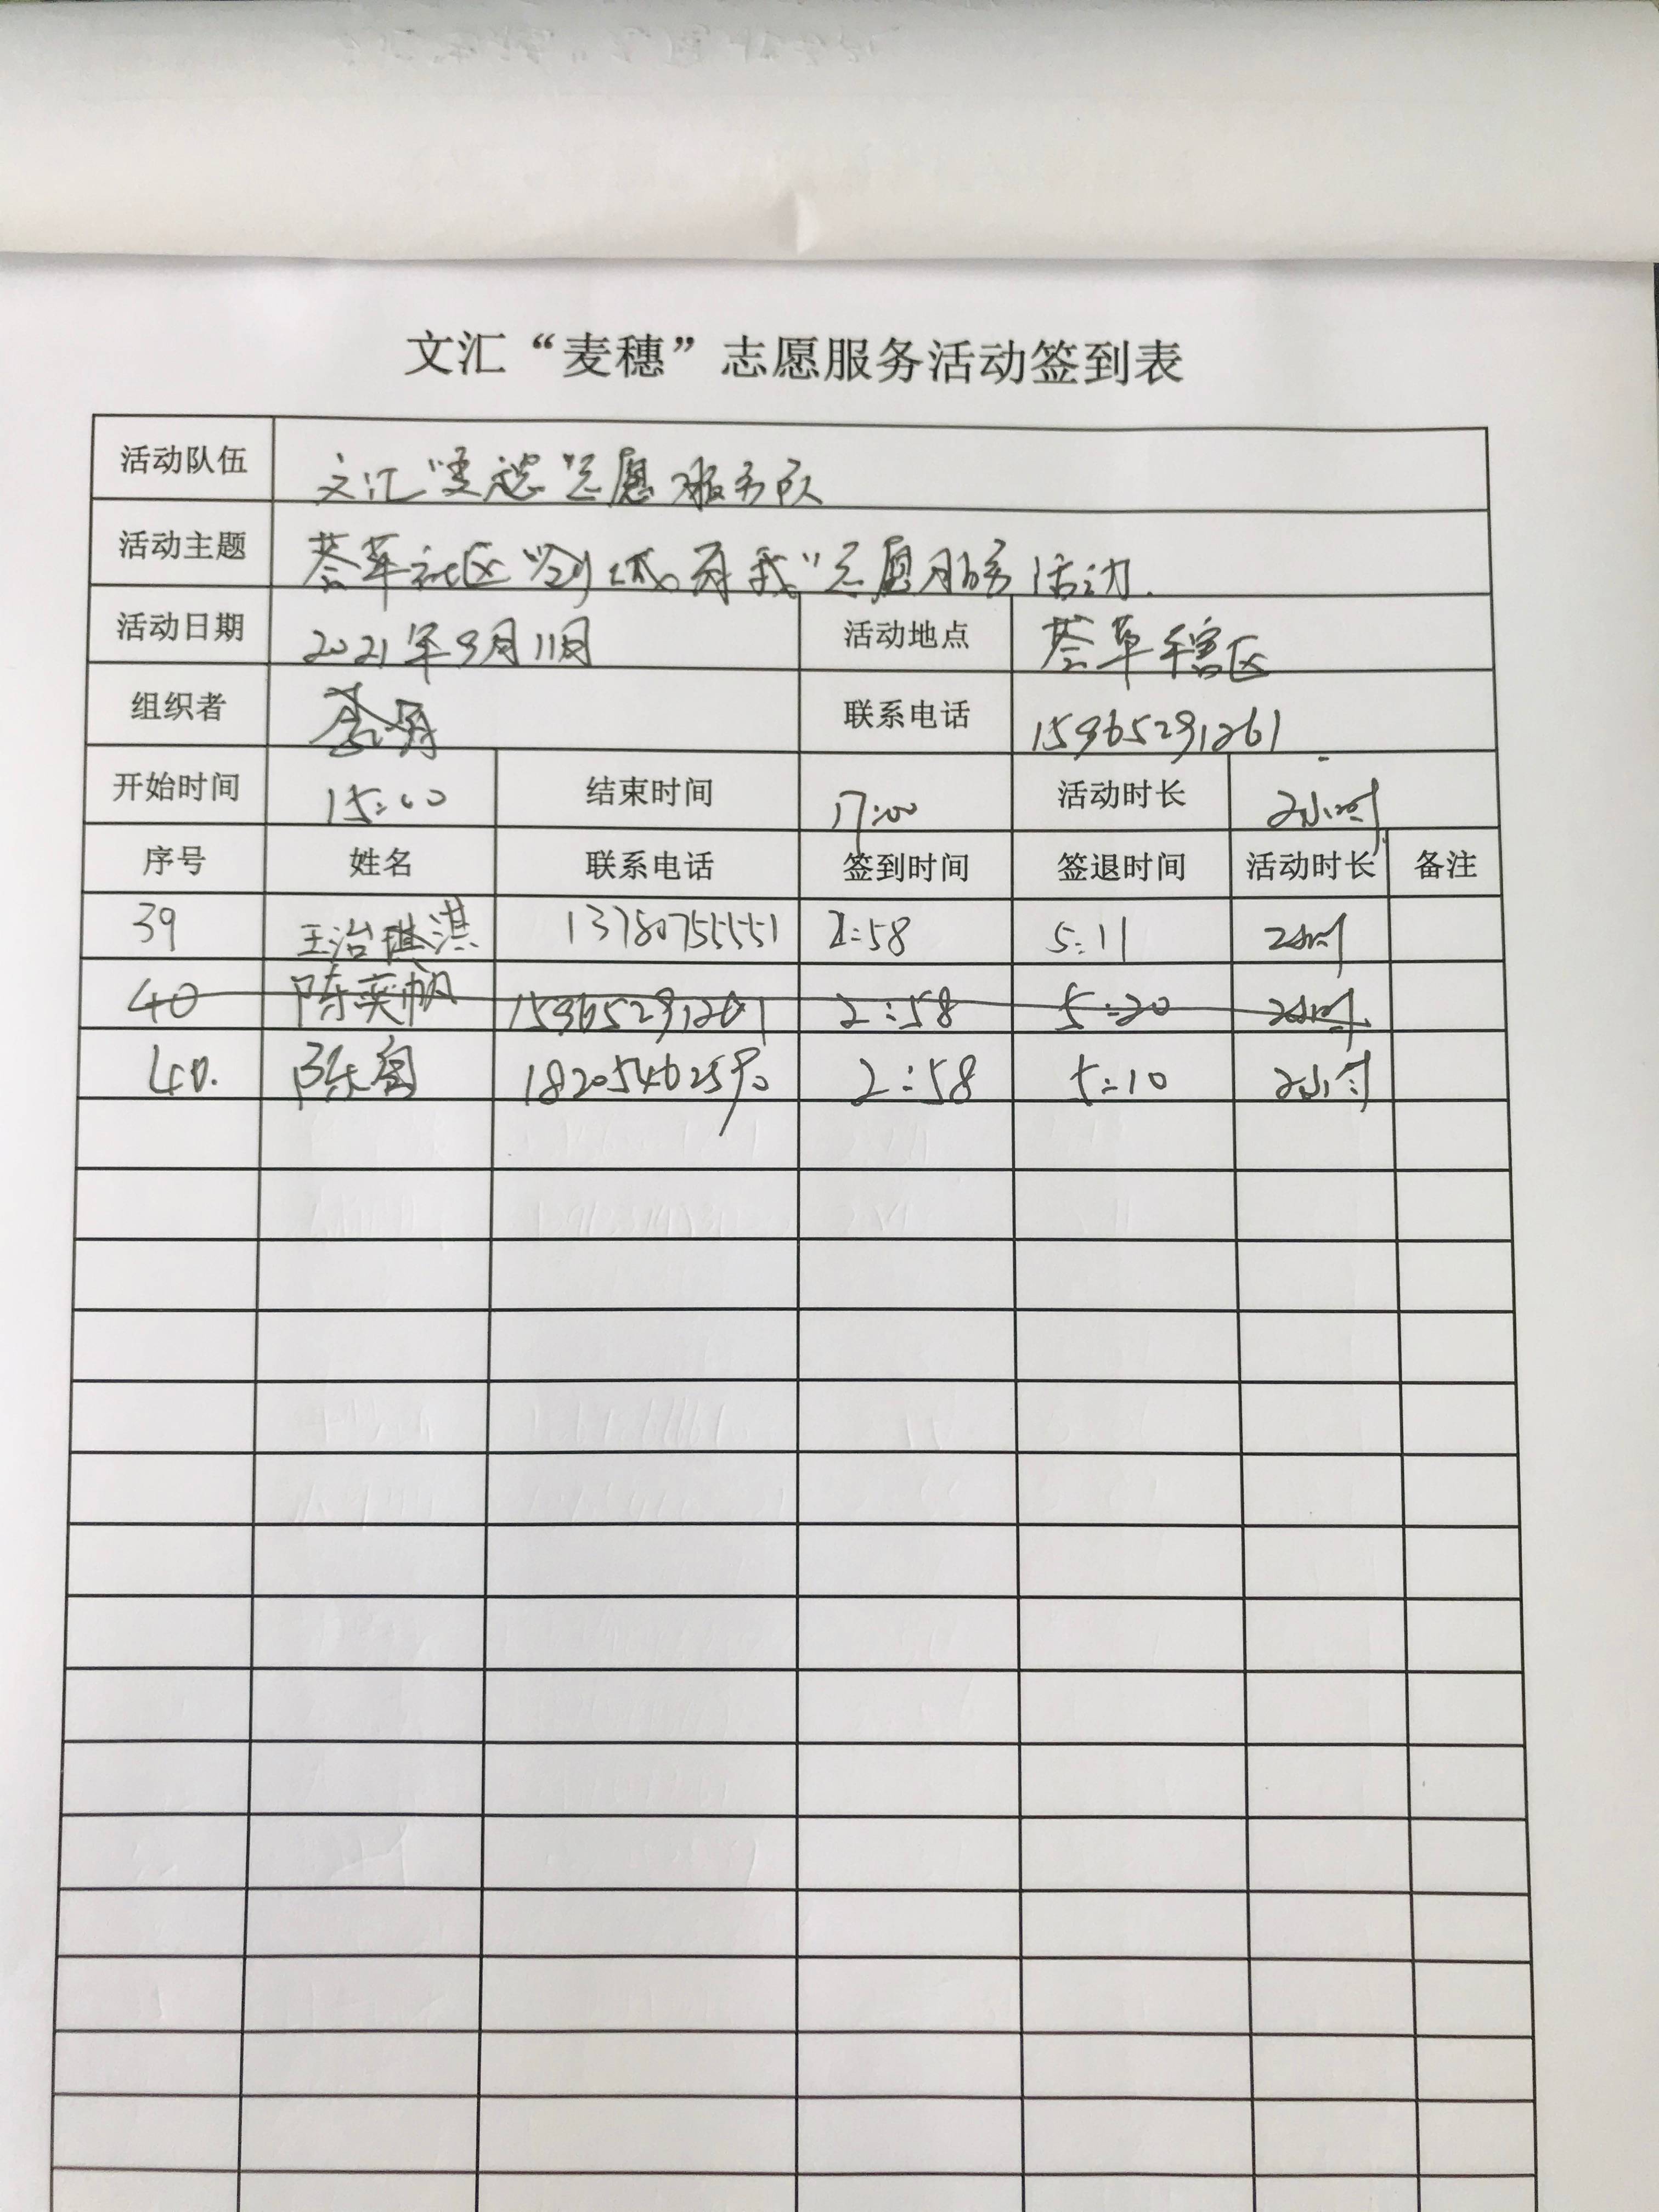 文汇“麦穗”志愿服务活动签到表
活动队伍 文汇“麦穗”志愿服务队
活动主题 荟萃社区“创城有我”志愿服务活动.
活动日期 2021年9月11日 活动地点 荟萃辖区
组织者 联系电话 15965291261
开始时间 15:00 结束时间 17:00 活动时长 2小时
序号 姓名 联系电话 签到时间 签退时间 活动时长 备注
39 王治琪淇 13780755551 2:58 5:11 2小时
40 陈奕帆 15965291261 2:58 5:20 2小时
40. 陈 2:58 5:10 2小时